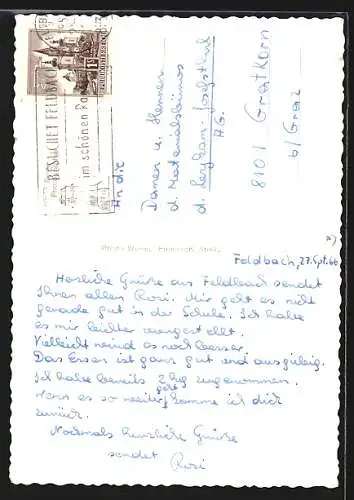 BESUCHET FELDBACH
im schönen Ra
An die
Damen u. Herren
d. Materialsbüros
d. Leykam-Josefsthal
AG.
8101 Gratkorn
b/Graz
Feldbach, 27. Sept. 66
Herzliche Grüße aus Feldbach sendet
Ihnen allen Rosi. Mir geht es nicht
gerade gut in der Schule. Ich habe
es mir leichter vorgestellt.
Vielleicht wird es noch besser.
Das Essen ist ganz gut und ausgiebig.
Ich habe bereits 2 kg zugenommen.
Wenn es so weiter geht komme ich dick
zurück.
Nochmals herzliche Grüße
sendet Rosi